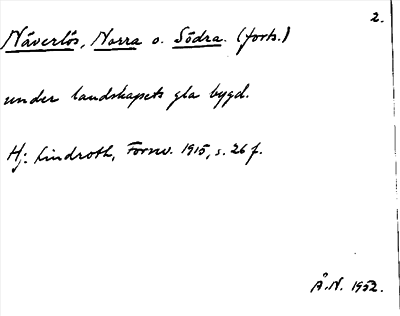 2.
Näverlös, Norra o. Södra. (forts.)
under landskapets gla bygd.
Hj. Lindroth, Fornv. 1915, s. 26 f.
Å.N. 1952.